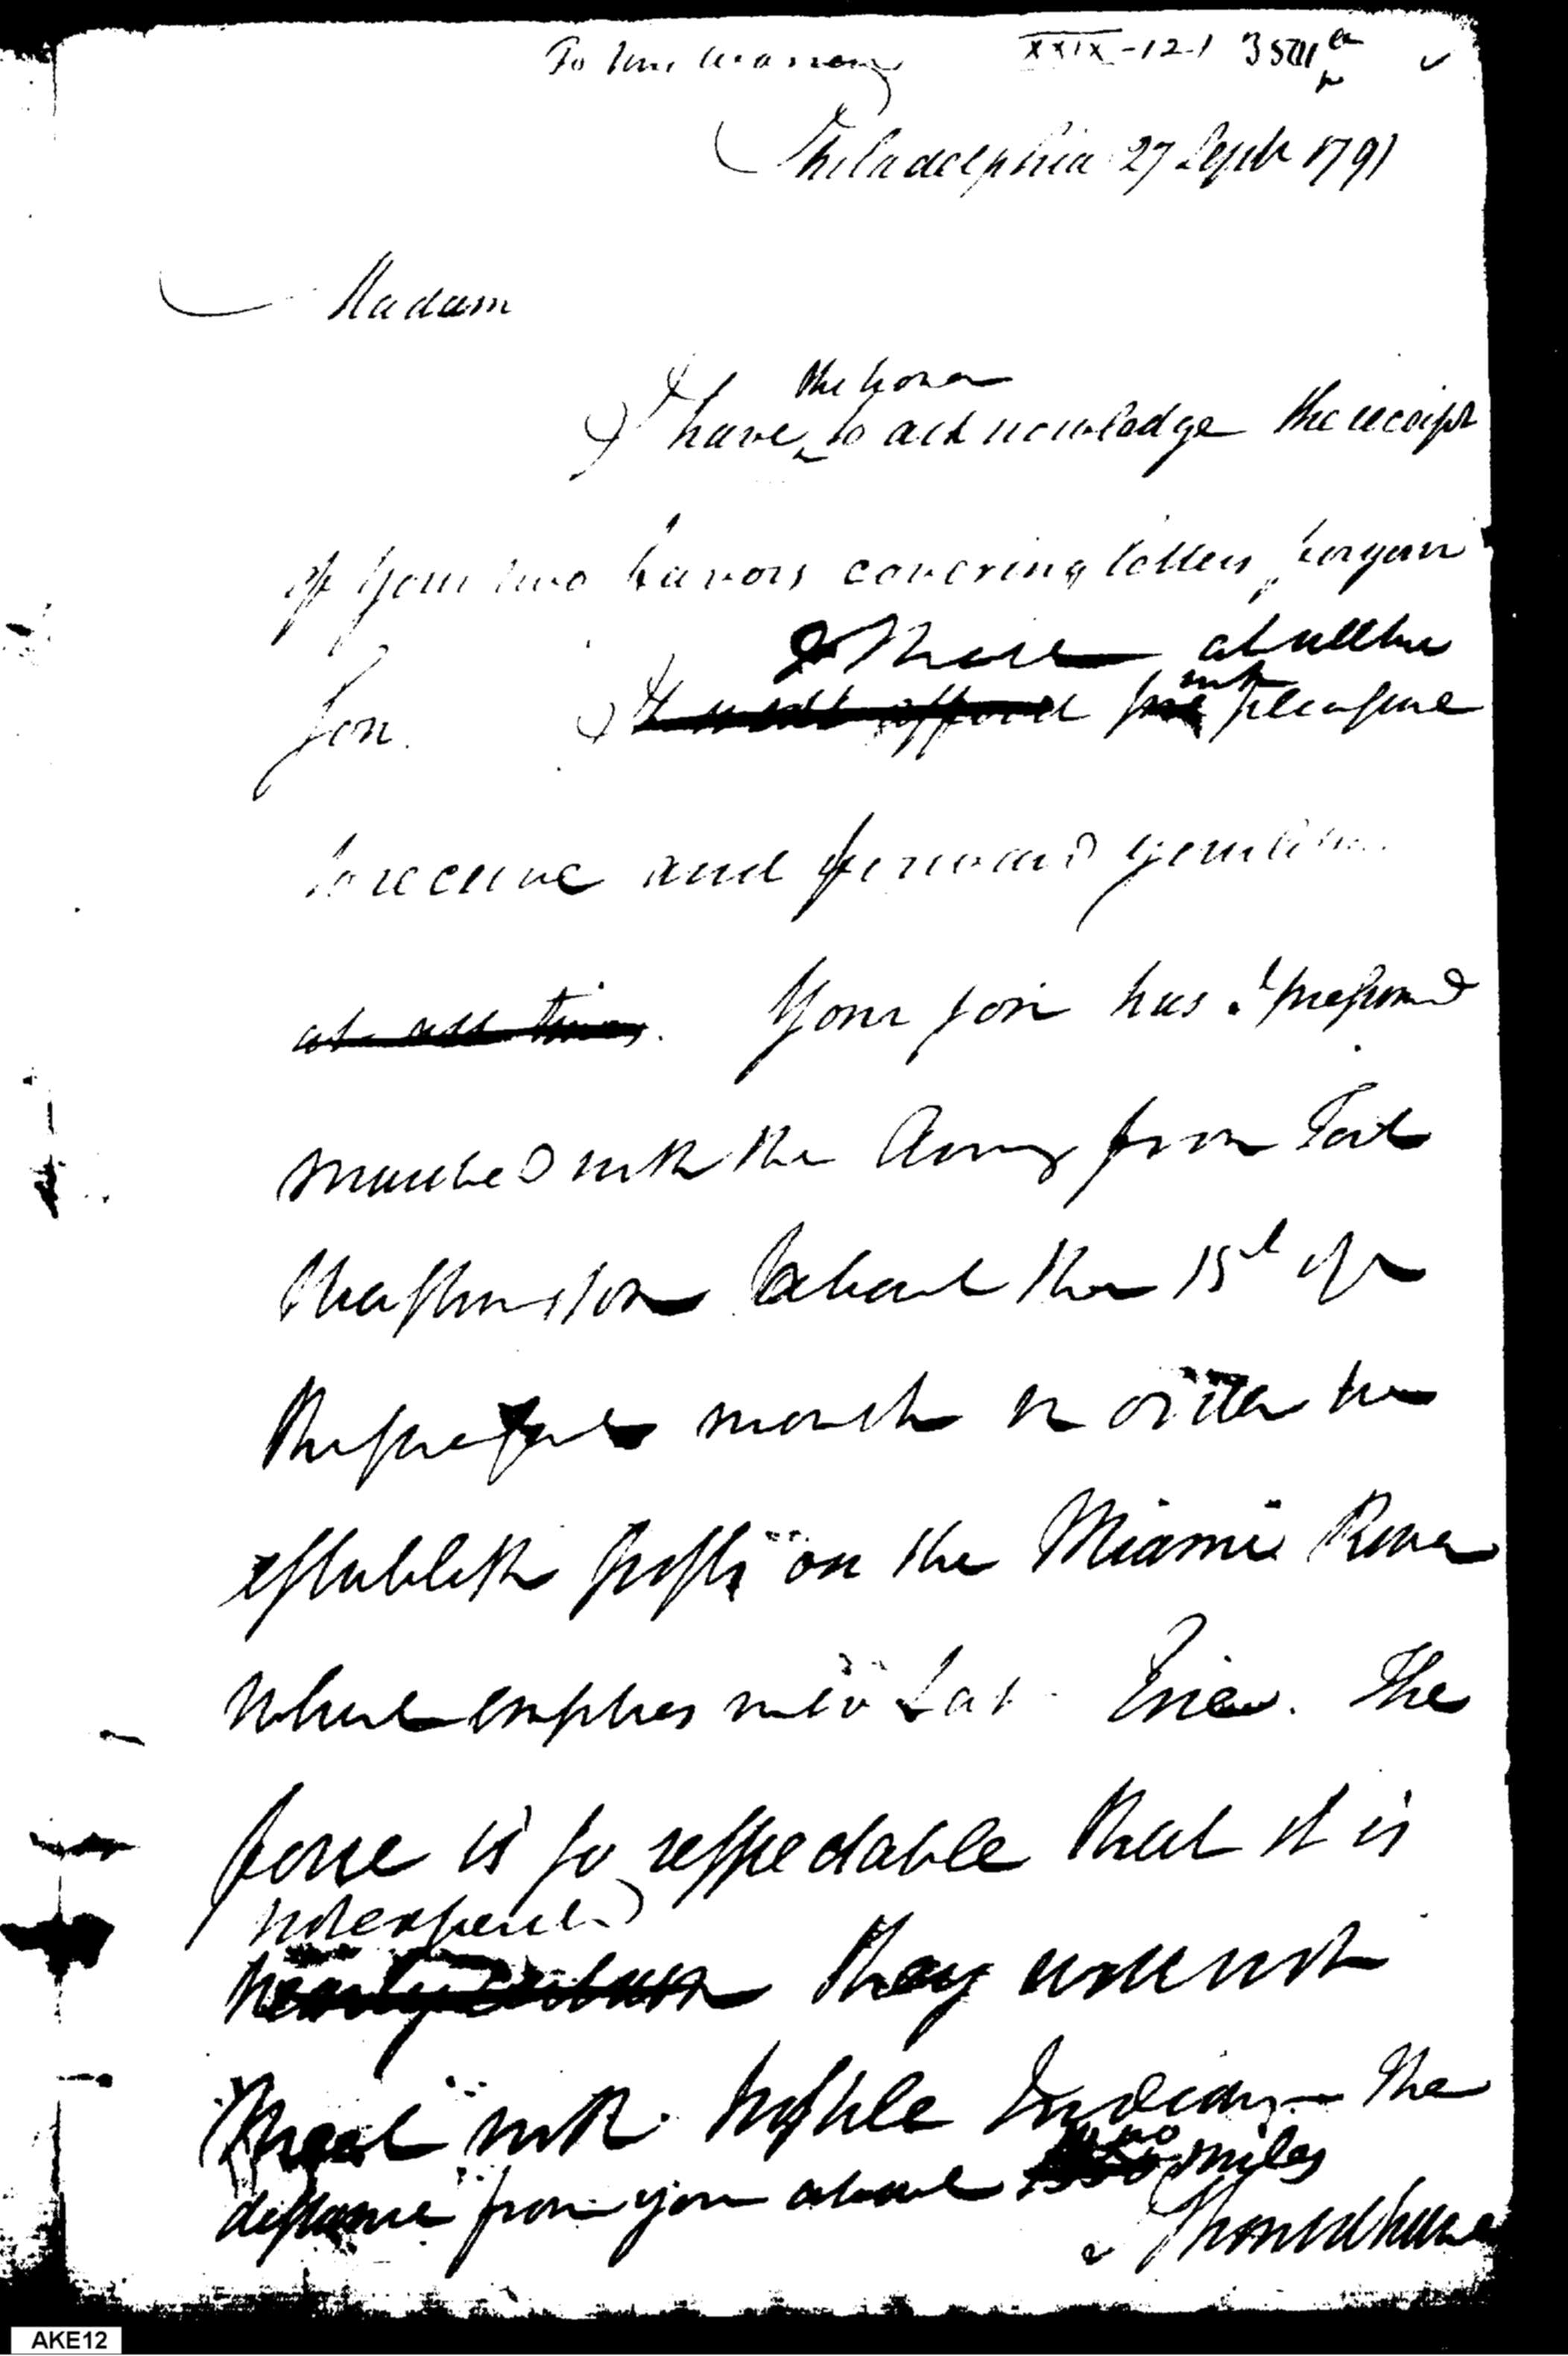 To Mrs Warren
XXIX-121 3501
Philadelphia 27 Sept 1791
Madam
the honor
I have to acknowledge the receipt
of your two favors covering letters, for your
I shall at all times
son. It will afford me with pleasure
to receive and forward your letters
at all times. Your son has I presume
marched with the Army from Fort
Washington about the 15th of
the present month in order to
establish posts on the Miami River
which empties into Lake Erie. The
force is so respectable that it is
not expected
they will not
meet with hostile Indians The
distance from you about miles
I should have
AKE12